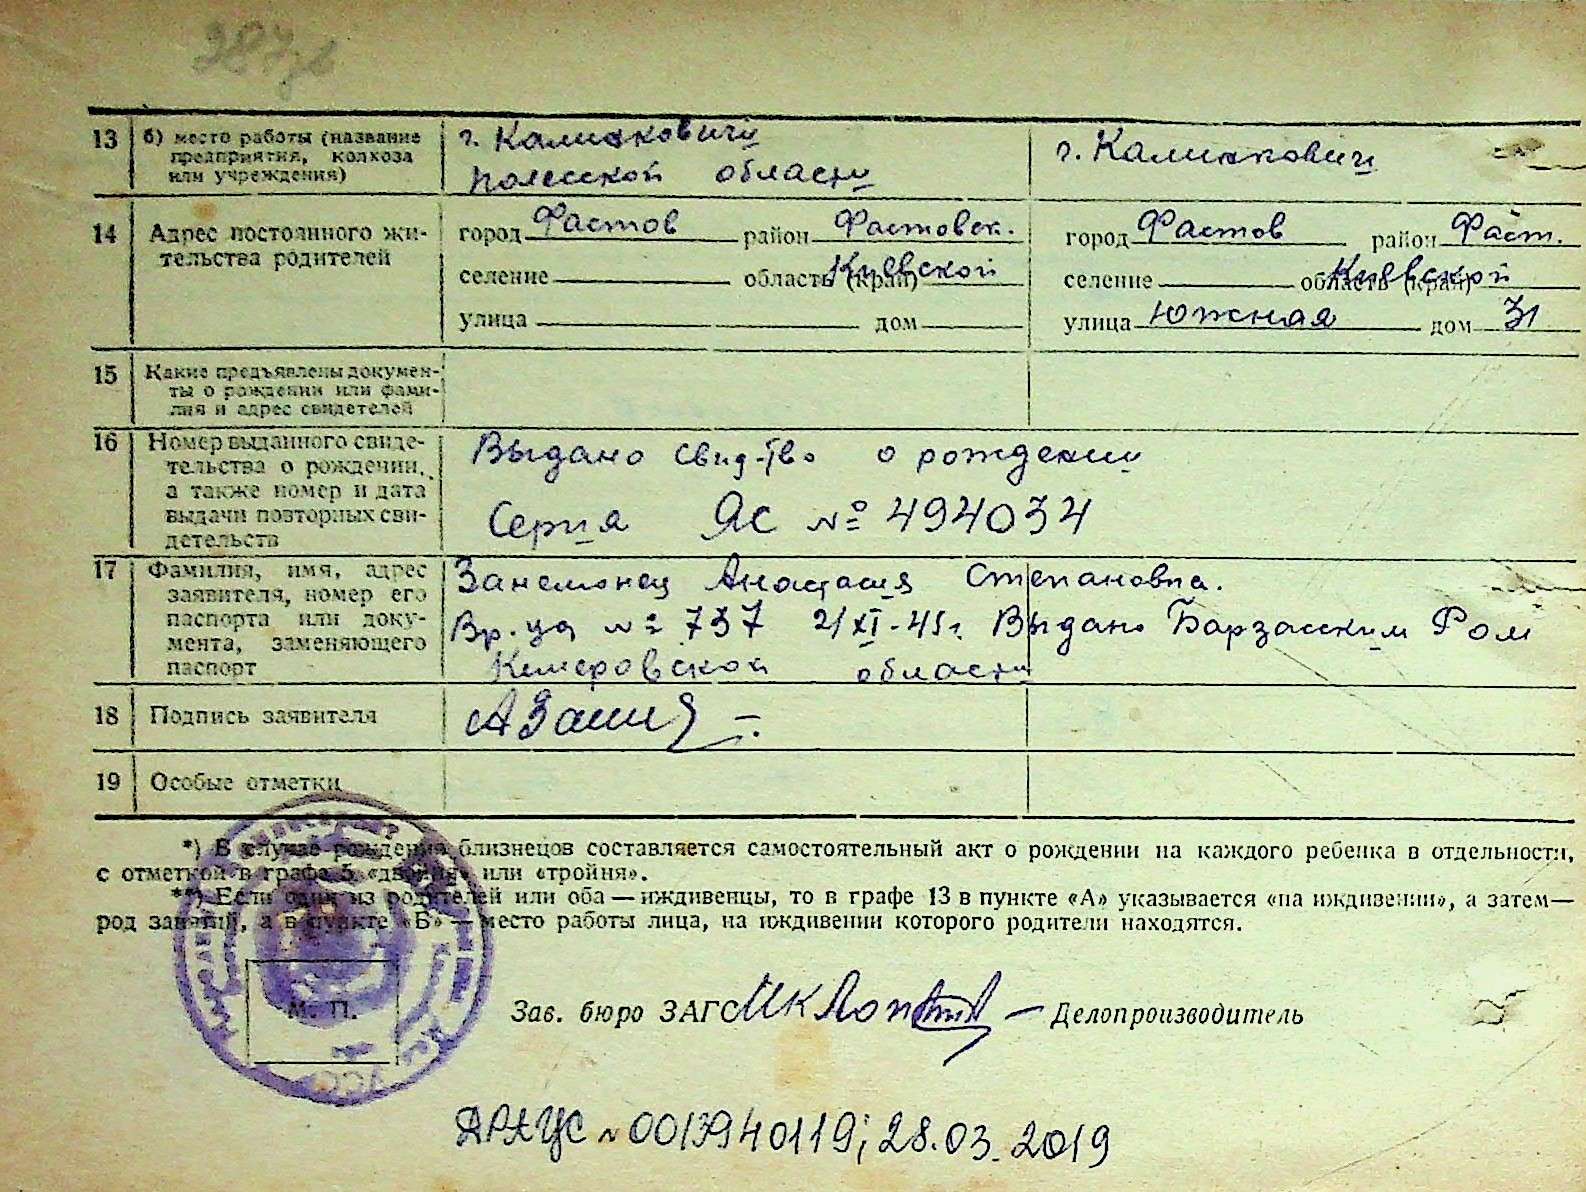 13 б) место работы (название предприятия, колхоза или учреждения)
г. Калинковичи
Полесской области
г. Калинковичи
14 Адрес постоянного жи-
тельства родителей
город Фастов район Фастовск.
селение область (край) Киевской
улица дом
город Фастов район Фаст.
селение область (край) Киевской
улица Южная дом 31
15 Какие предъявлены докумен-
ты о рождении или фами-
лия и адрес свидетелей
16 Номер выданного свиде-
тельства о рождении,
а также номер и дата
выдачи повторных сви-
детельств
Выдано свид-тво о рождении
Серия ЯС № 494034
17 Фамилия, имя, адрес
заявителя, номер его
паспорта или доку-
мента, заменяющего
паспорт
Занемонец Анастасия Степановна.
Вр. уд № 737 21/XI-45г. Выдано Барзасским РОМ
Кемеровской области
18 Подпись заявителя
19 Особые отметки
*) В случае рождения близнецов составляется самостоятельный акт о рождении на каждого ребенка в отдельности,
с отметкой в графе 5 «двойня» или «тройня».
**) Если один из родителей или оба — иждивенцы, то в графе 13 в пункте «А» указывается «на иждивении», а затем —
род занятий, а в пункте «Б» — место работы лица, на иждивении которого родители находятся.
М. П.
Зав. бюро ЗАГС Делопроизводитель
ДРАЦС № 0013940119; 28.03.2019